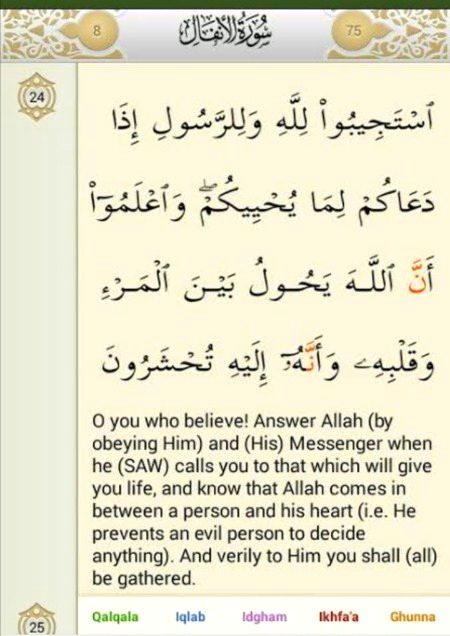 8
سُورَةُ الأَنفَالِ
75
24
ٱسْتَجِيبُوا۟ لِلَّهِ وَلِلرَّسُولِ إِذَا
دَعَاكُمْ لِمَا يُحْيِيكُمْ ۖ وَٱعْلَمُوٓا۟
أَنَّ ٱللَّهَ يَحُولُ بَيْنَ ٱلْمَرْءِ
وَقَلْبِهِۦ وَأَنَّهُۥٓ إِلَيْهِ تُحْشَرُونَ
O you who believe! Answer Allah (by
obeying Him) and (His) Messenger when
he (SAW) calls you to that which will give
you life, and know that Allah comes in
between a person and his heart (i.e. He
prevents an evil person to decide
anything). And verily to Him you shall (all)
be gathered.
25
Qalqala Iqlab Idgham Ikhfa'a Ghunna